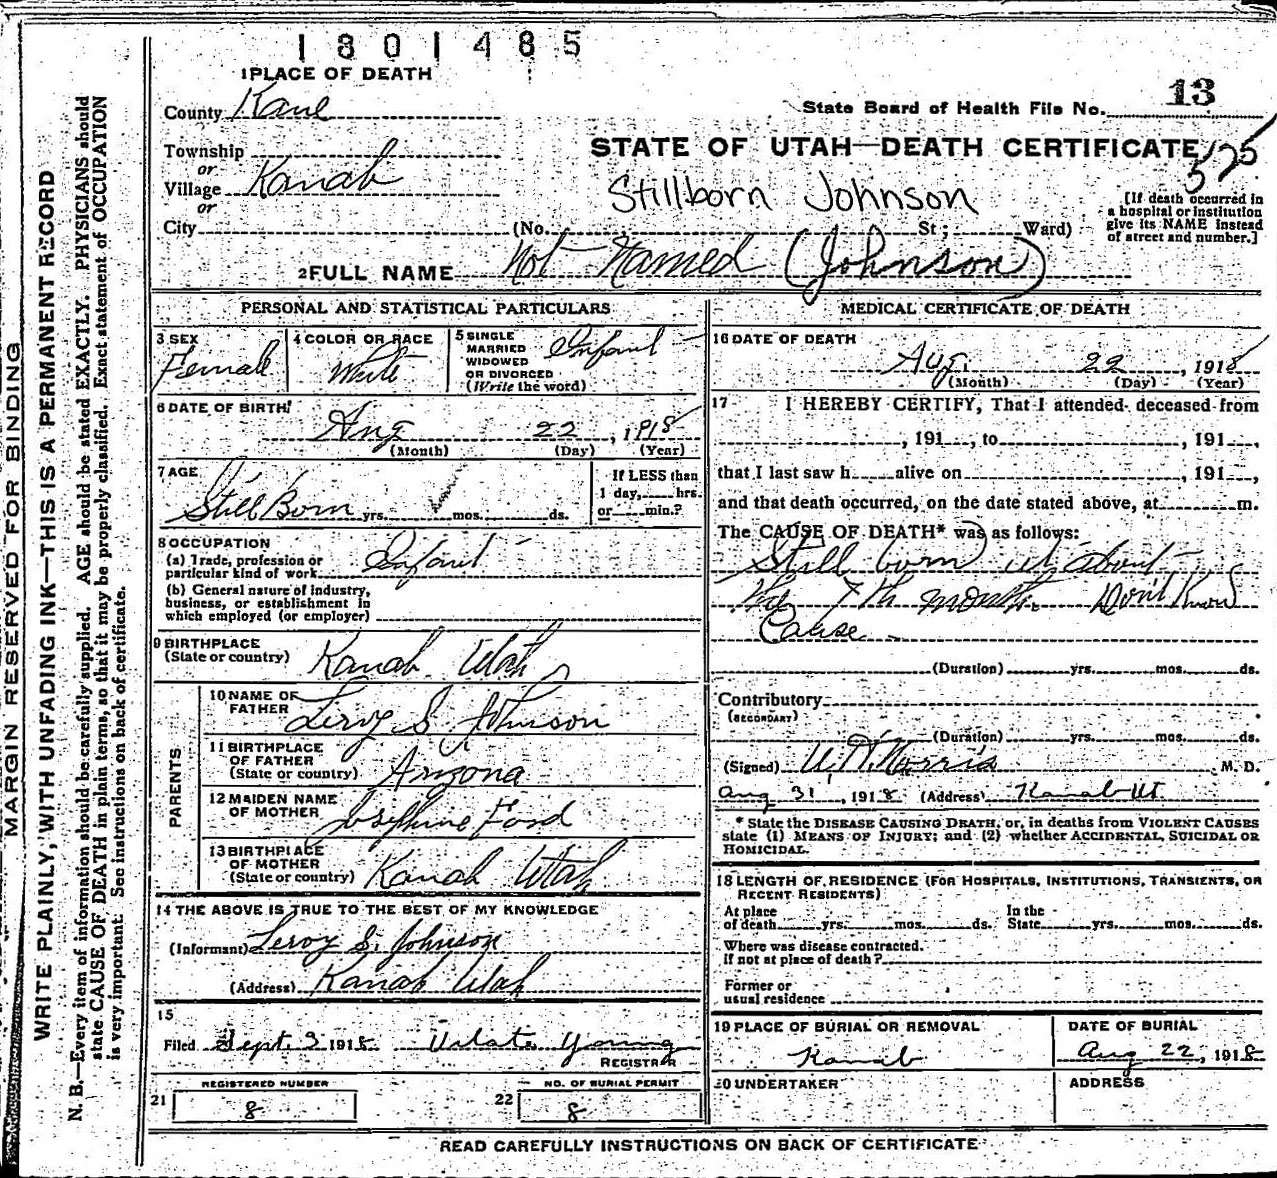 1801485
1 PLACE OF DEATH
County Kane
State Board of Health File No. 13
Township
or
Village Kanab
or
City
STATE OF UTAH—DEATH CERTIFICATE
525
Stillborn Johnson
(No. St; Ward)
[If death occurred in
a hospital or institution
give its NAME instead
of street and number.]
2 FULL NAME Not Named (Johnson)
PERSONAL AND STATISTICAL PARTICULARS
3 SEX
Female
4 COLOR OR RACE
White
5 SINGLE
MARRIED
WIDOWED
OR DIVORCED
(Write the word)
Infant
6 DATE OF BIRTH
Aug 22, 1918
(Month) (Day) (Year)
7 AGE
Still Born yrs. mos. ds.
If LESS than
1 day, hrs.
or min.?
8 OCCUPATION
(a) Trade, profession or
particular kind of work Infant
(b) General nature of industry,
business, or establishment in
which employed (or employer)
9 BIRTHPLACE
(State or country) Kanab Utah
PARENTS
10 NAME OF
FATHER Leroy S. Johnson
11 BIRTHPLACE
OF FATHER
(State or country) Arizona
12 MAIDEN NAME
OF MOTHER Josephine Ford
13 BIRTHPLACE
OF MOTHER
(State or country) Kanab Utah
14 THE ABOVE IS TRUE TO THE BEST OF MY KNOWLEDGE
(Informant) Leroy S. Johnson
(Address) Kanab Utah
15
Filed Sept. 3 1918 Young
REGISTRAR
REGISTERED NUMBER
21 8
NO. OF BURIAL PERMIT
22 8
MEDICAL CERTIFICATE OF DEATH
16 DATE OF DEATH
Aug. 22, 1918
(Month) (Day) (Year)
17 I HEREBY CERTIFY, That I attended deceased from
, 191 , to , 191 ,
that I last saw h alive on , 191 ,
and that death occurred, on the date stated above, at m.
The CAUSE OF DEATH* was as follows:
Still born at about
the 7th month. Don't Know
Cause
(Duration) yrs. mos. ds.
Contributory
(SECONDARY)
(Duration) yrs. mos. ds.
(Signed) Norris M. D.
Aug 31, 1918 (Address) Kanab Ut
* State the DISEASE CAUSING DEATH, or, in deaths from VIOLENT CAUSES
state (1) MEANS OF INJURY; and (2) whether ACCIDENTAL, SUICIDAL OR
HOMICIDAL.
18 LENGTH OF RESIDENCE (FOR HOSPITALS, INSTITUTIONS, TRANSIENTS, OR
RECENT RESIDENTS)
At place
of death yrs. mos. ds.
In the
State yrs. mos. ds.
Where was disease contracted.
if not at place of death?
Former or
usual residence
19 PLACE OF BURIAL OR REMOVAL
Kanab
DATE OF BURIAL
Aug 22, 1918
20 UNDERTAKER
ADDRESS
READ CAREFULLY INSTRUCTIONS ON BACK OF CERTIFICATE
MARGIN RESERVED FOR BINDING
WRITE PLAINLY, WITH UNFADING INK—THIS IS A PERMANENT RECORD
N. B.—Every item of information should be carefully supplied. AGE should be stated EXACTLY. PHYSICIANS should
state CAUSE OF DEATH in plain terms, so that it may be properly classified. Exact statement of OCCUPATION
is very important. See instructions on back of certificate.